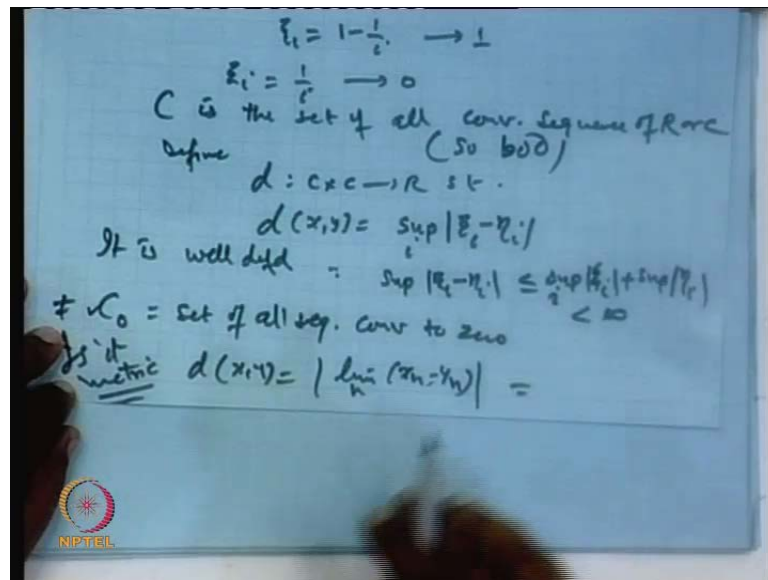 ξᵢ = 1 - 1/i. → 1
ξᵢ = 1/i → 0
C is the set of all conv. sequence of R or C
Define (so bdd)
d : C×C → R st.
d(x,y) = sup_i |ξᵢ - ηᵢ|
It is well defd - sup |ξᵢ - ηᵢ| ≤ sup_i |ξᵢ| + sup |ηᵢ|
< ∞
≠ C₀ = Set of all seq. conv to zero
Is it
metric d(x,y) = | lim_n (xₙ - yₙ) | =
NPTEL